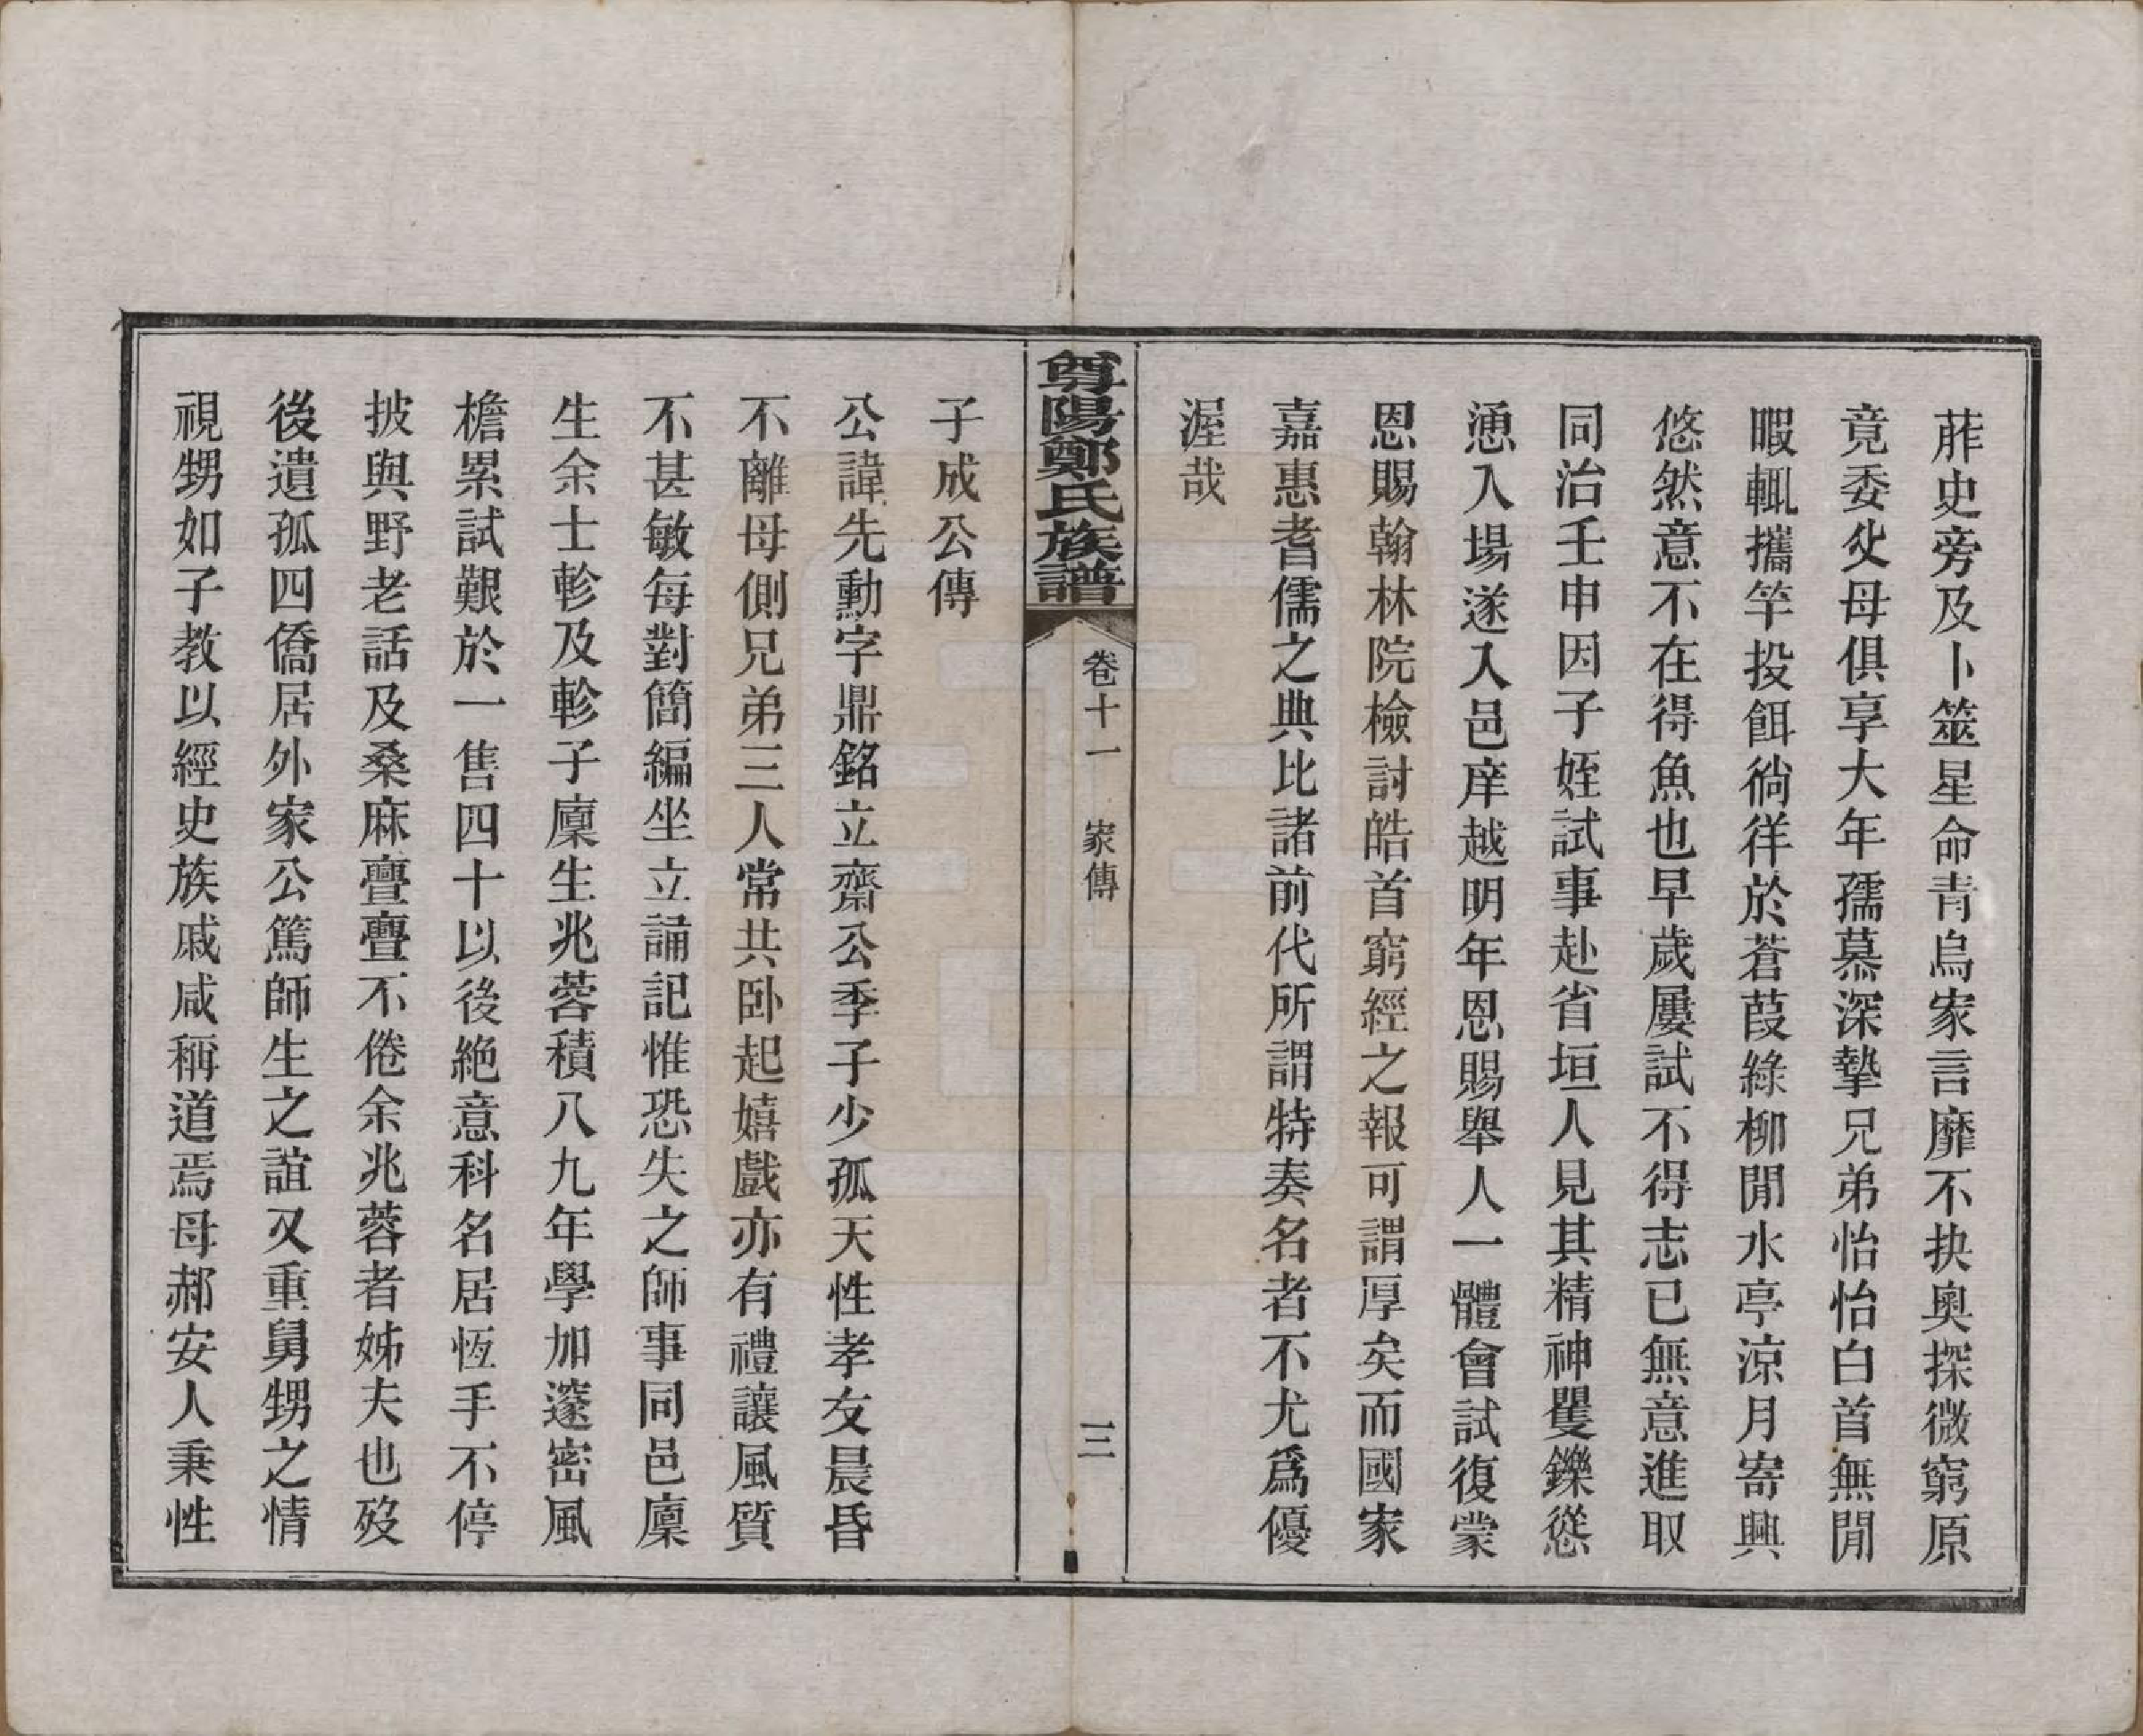 葄史旁及卜筮星命青烏家言靡不抉奥探微窮原
竟委父母俱享大年孺慕深摯兄弟怡怡白首無閒
暇輒攜竿投餌徜徉於蒼葭綠柳閒水亭涼月寄興
悠然意不在得魚也早歲屢試不得志已無意進取
同治壬申因子姪試事赴省垣人見其精神矍鑠慫
慂入場遂入邑庠越明年恩賜舉人一體會試復蒙
恩賜翰林院檢討皓首窮經之報可謂厚矣而國家
嘉惠耆儒之典比諸前代所謂特奏名者不尤爲優
渥哉
尊陽鄭氏族譜
卷十一 家傳
三
子成公傳
公諱先勳字鼎銘立齋公季子少孤天性孝友晨昏
不離母側兄弟三人常共卧起嬉戲亦有禮讓風質
不甚敏每對簡編坐立誦記惟恐失之師事同邑廩
生余士軫及軫子廩生兆蓉積八九年學加邃密風
檐累試艱於一售四十以後絶意科名居恆手不停
披與野老話及桑麻亹亹不倦余兆蓉者姊夫也歿
後遺孤四僑居外家公篤師生之誼又重舅甥之情
視甥如子教以經史族戚咸稱道焉母郝安人秉性